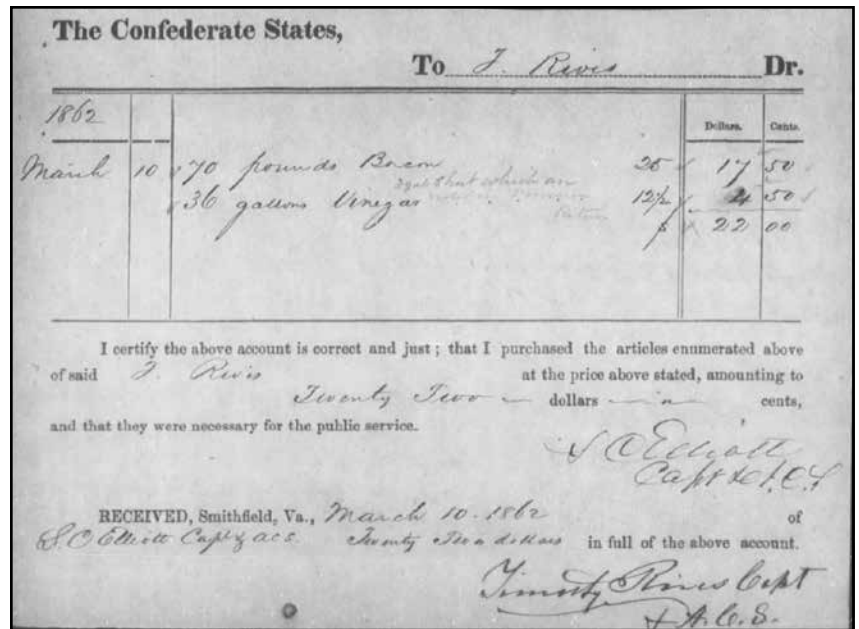 The Confederate States,
To T. Rives Dr.
1862
Dollars. Cents.
March 10 70 pounds Bacon 25 17 50
36 gallons Vinegar 12½ 4 50
$ 22 00
I certify the above account is correct and just; that I purchased the articles enumerated above
of said T. Rives at the price above stated, amounting to
Twenty Two dollars cents,
and that they were necessary for the public service.
S. O Elliott
Capt & A.C.S
RECEIVED, Smithfield, Va., March 10. 1862 of
S. O Elliott Capt & acs Twenty Two dollars in full of the above account.
Timothy Rives Capt
& A.C.S.